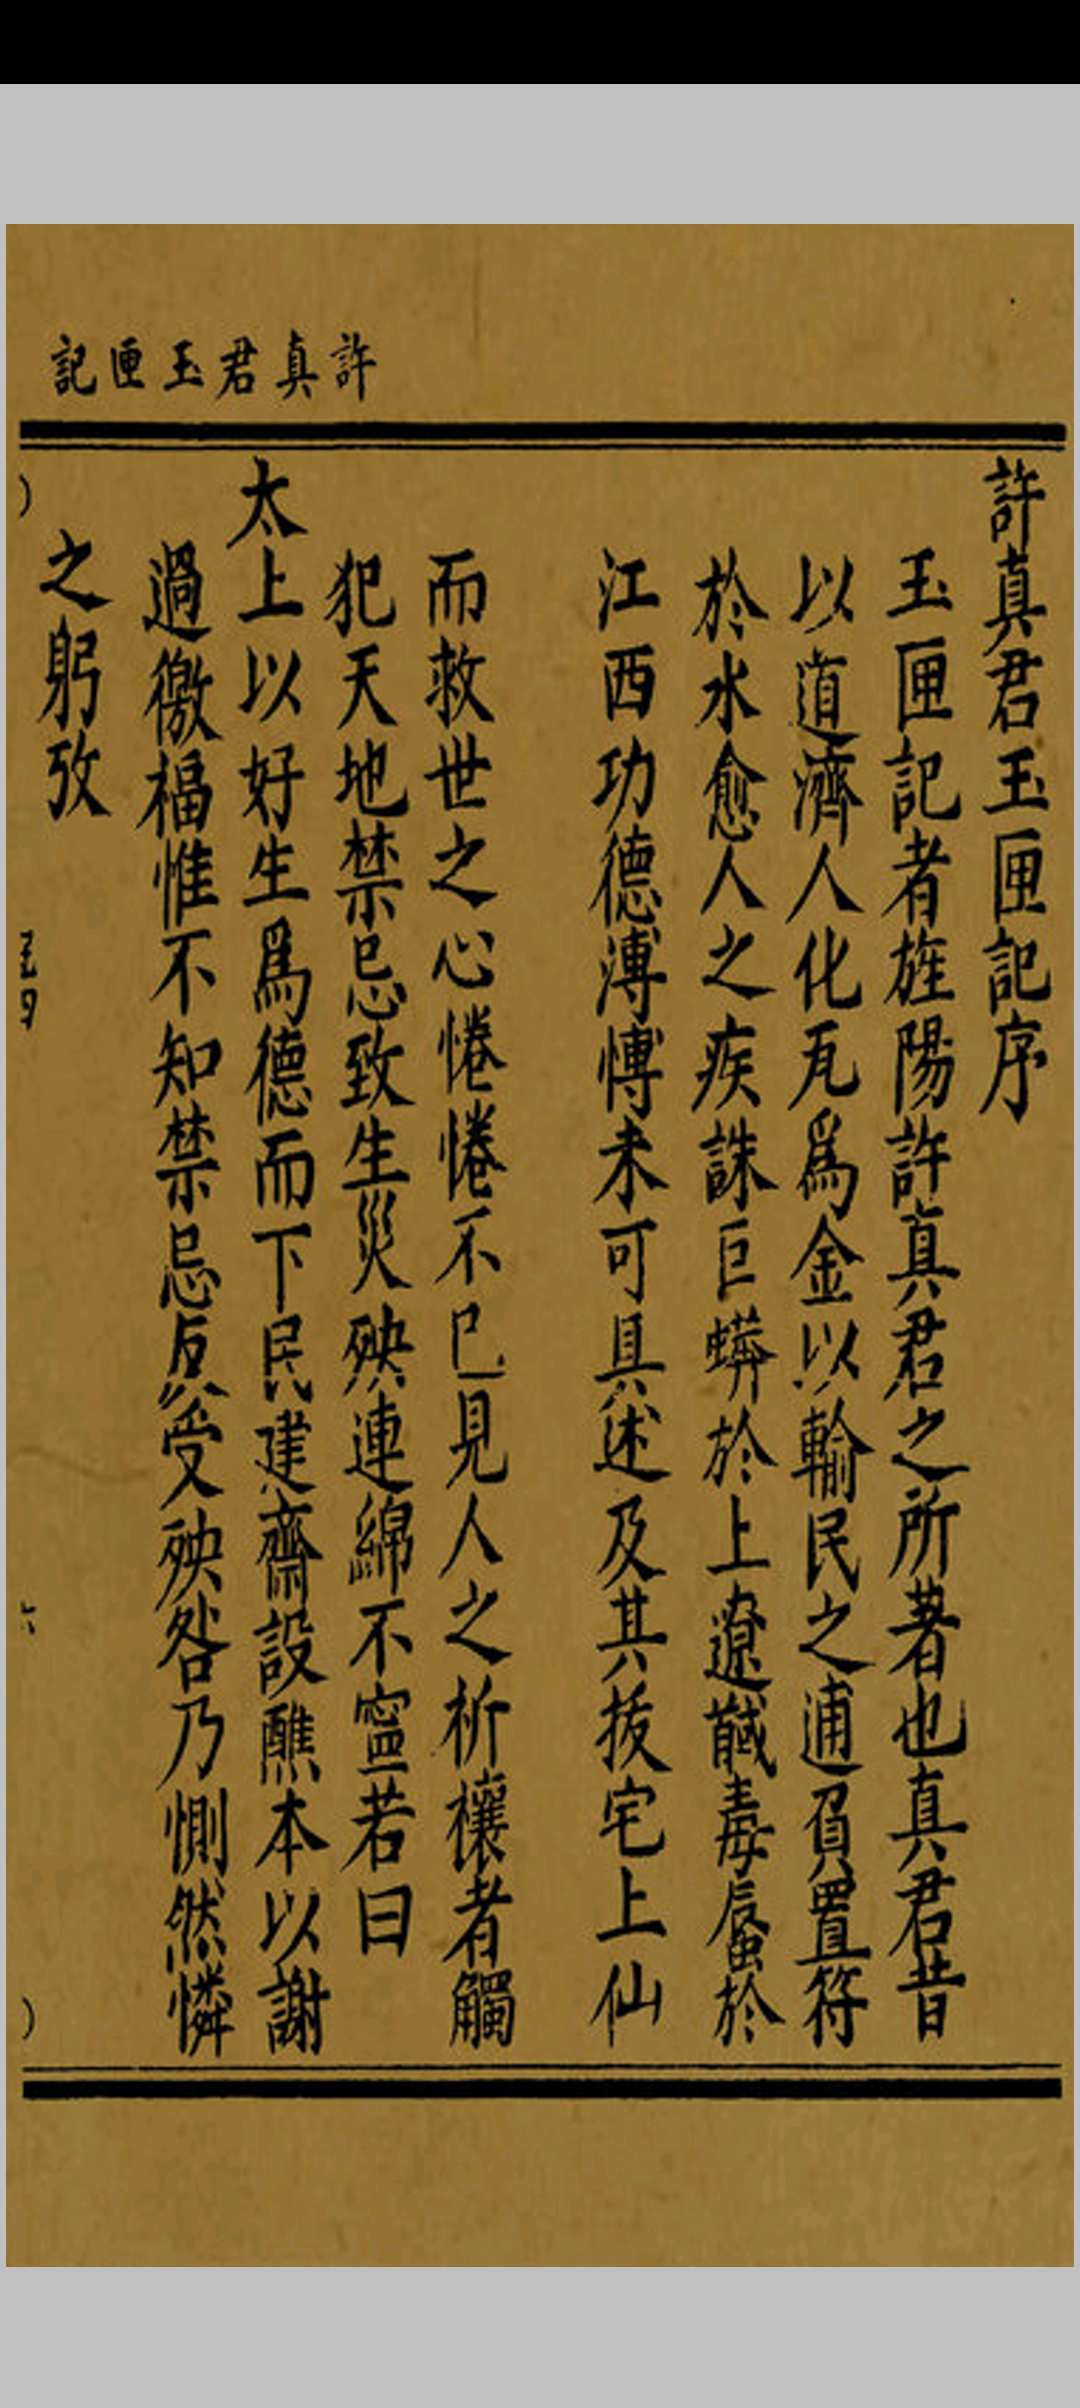 許真君玉匣記
許真君玉匣記序
玉匣記者旌陽許真君之所著也真君昔
以道濟人化瓦爲金以輸民之逋負置符
於水愈人之疾誅巨蟒於上遼馘毒蜃於
江西功德溥愽未可具述及其拔宅上仙
而救世之心惓惓不已見人之祈禳者觸
犯天地禁忌致生災殃連綿不寧若曰
太上以好生爲德而下民建齋設醮本以謝
過徼福惟不知禁忌反受殃咎乃惻然憐
之躬攷